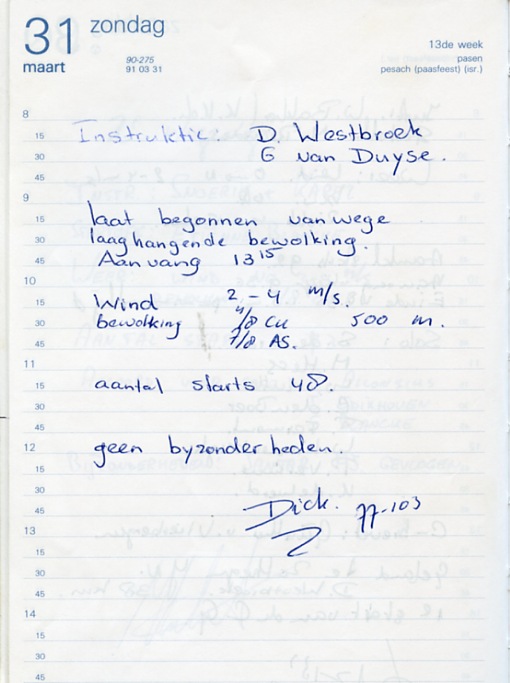 31 zondag
maart
90-275
91 03 31
13de week
pasen
pesach (paasfeest) (isr.)
8
15 Instruktie. D. Westbroek
30 G van Duyse.
45
9
15 laat begonnen vanwege
30 laaghangende bewolking.
45 Aanvang 13 15
10
15 Wind 2 - 4 m/s.
30 bewolking 4/8 Cu 500 m.
45 7/8 AS.
11
15 aantal starts 48.
30
45
12 geen byzonderheden.
15
30
45 Dick. 77-103
13
15
30
45
14
15
30
45